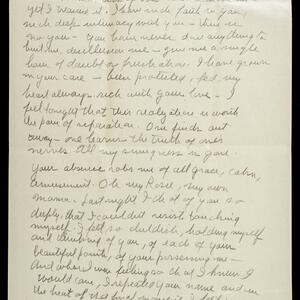 yet I wanted it. I have such faith in you,
such deep intimacy with you – there is
no you – you have never done anything to
hurt me, disillusion me – give me a single
hour of doubt or frustration. I have grown
in your care – been protected, fed, my
heart always rich with your love – I
felt tonight that this realization is worth
the pain of separation. One finds out
away – one learns the truth of one's
nerves. All my smugness is gone.
Your absence robs me of all grace, calm,
amusement. Oh my Rose, my own
mama. Last night I thot of you so
deeply, that I could not resist touching
myself. I felt so childish, holding myself
and thinking of you, of each of your
beautiful points, of your possessing me –
And when I was feeling so that I knew I
would come, I repeated your name and in
the heat of that